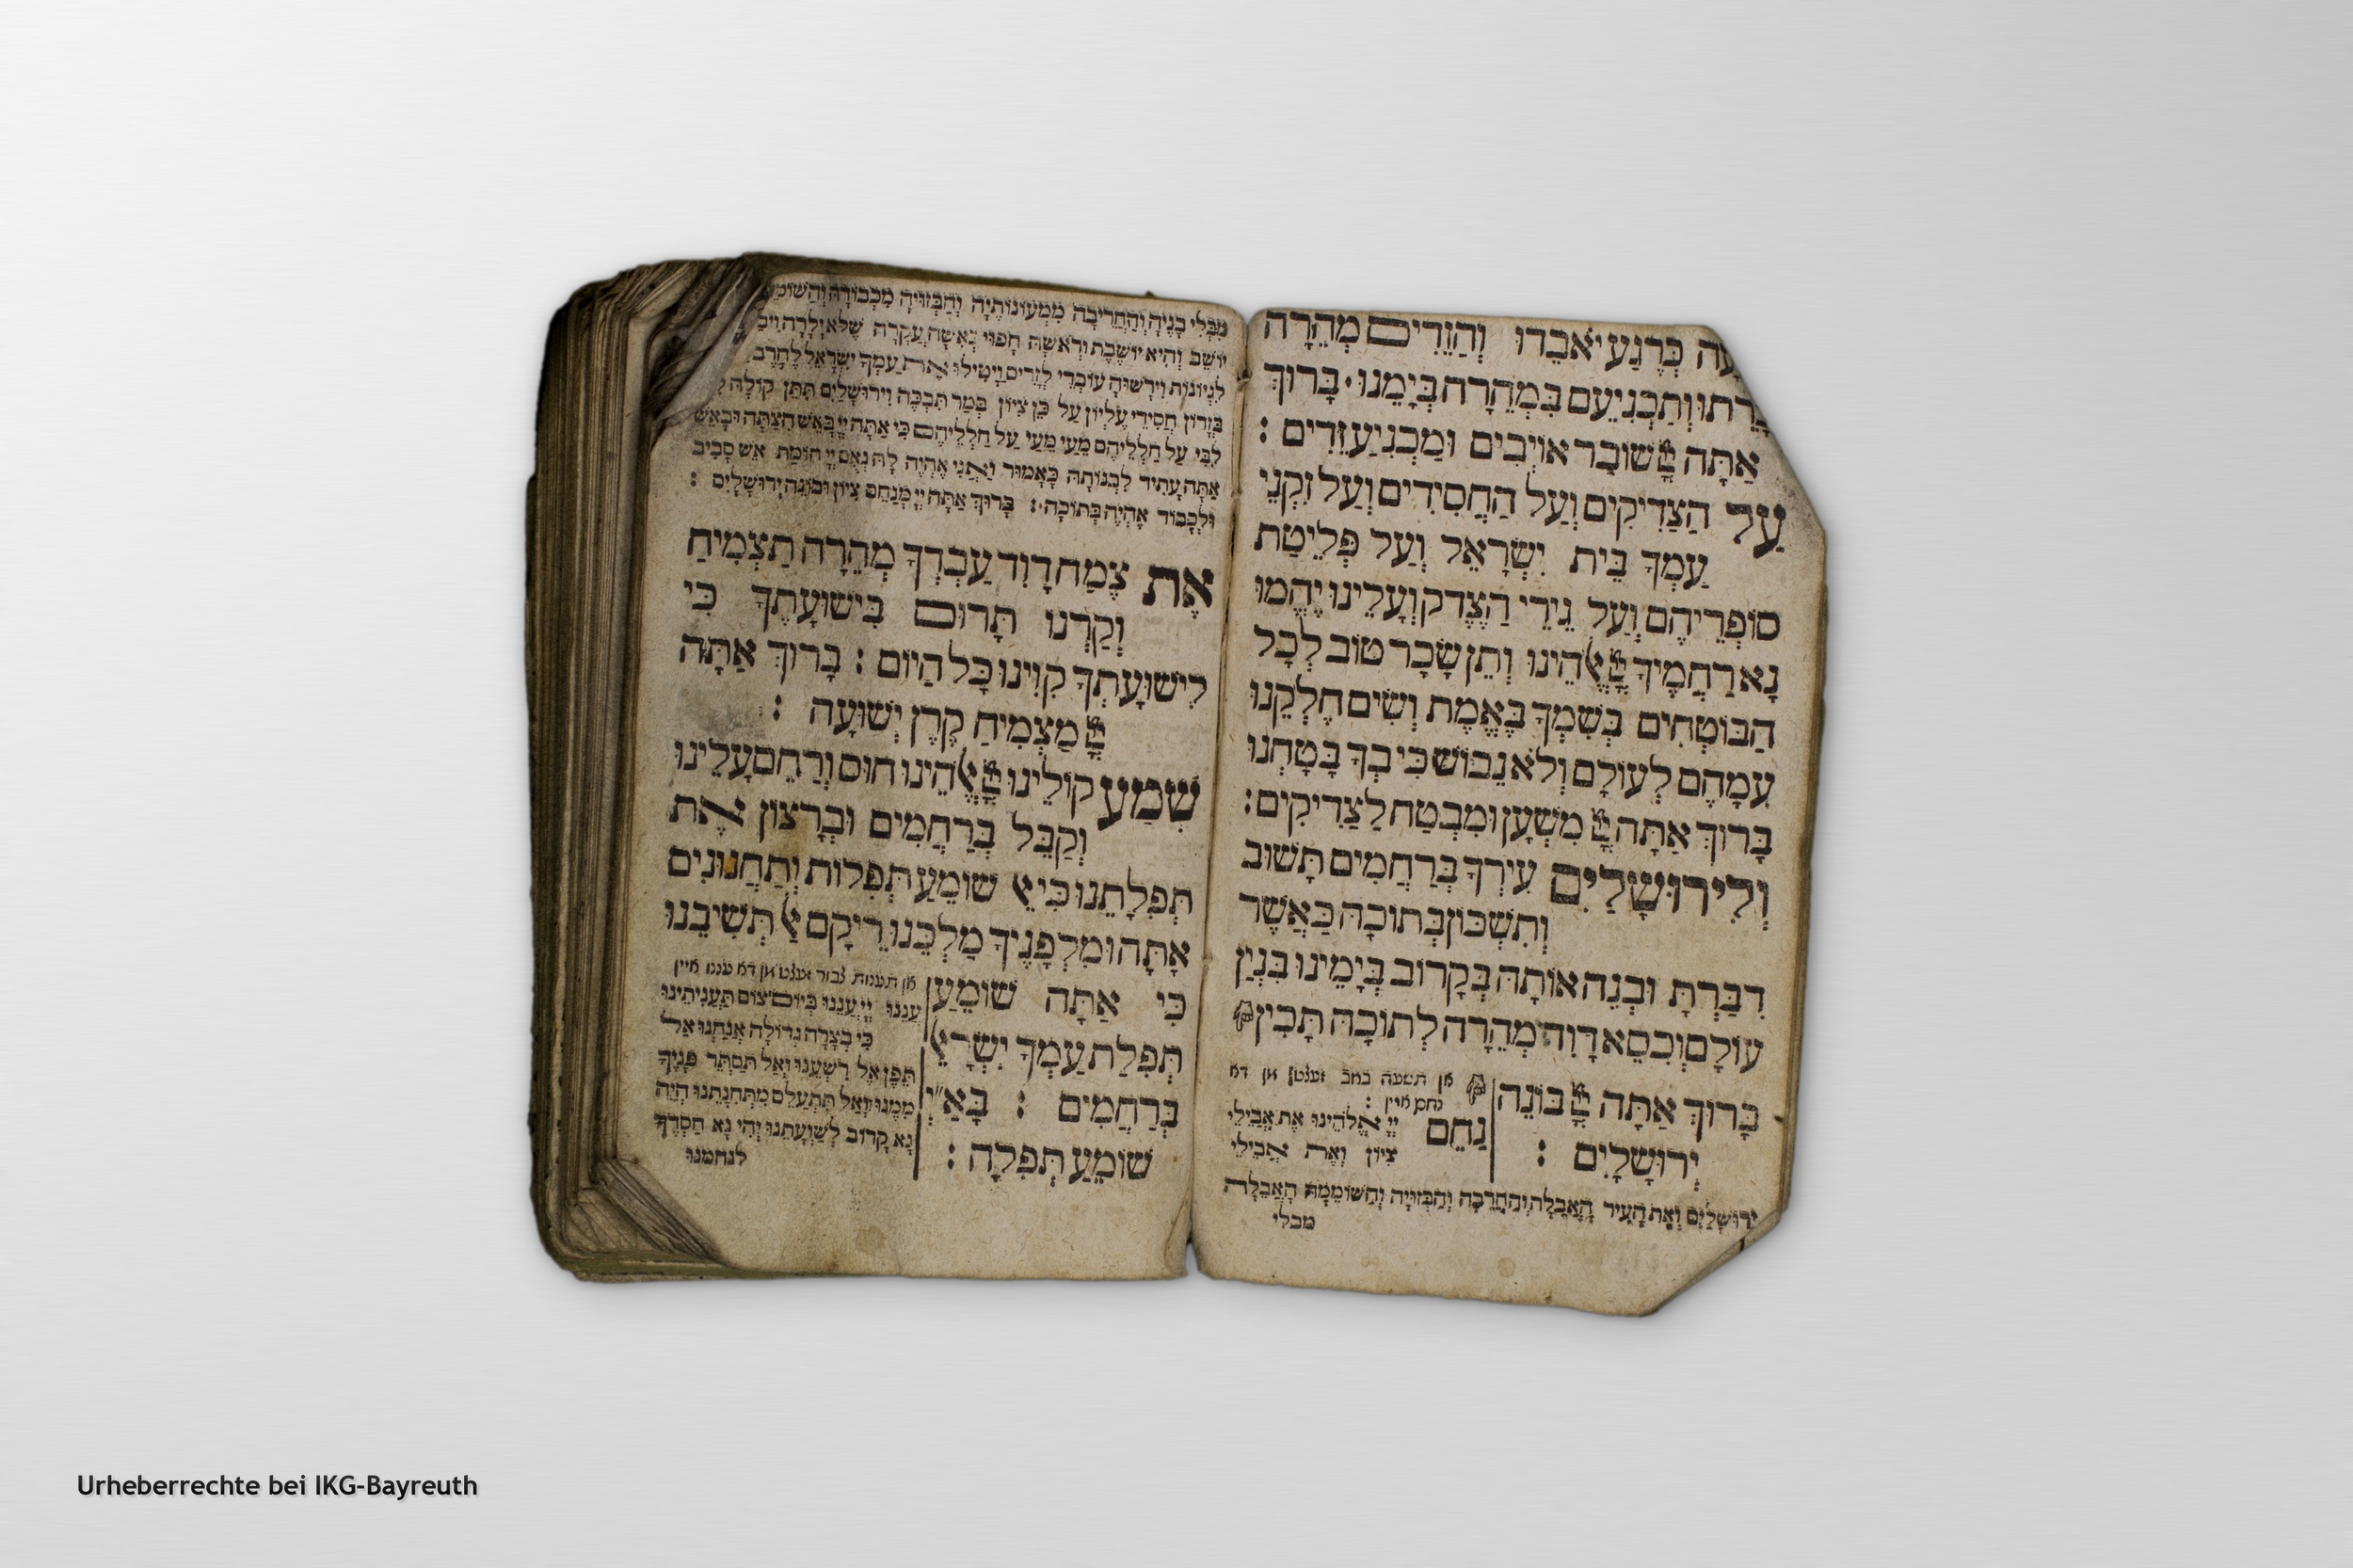 כְּרֶגַע יֹאבֵדוּ וְהַזֵדִים מְהֵרָה
וְתַכְנִיעֵם בִּמְהֵרָה בְּיָמֵנוּ· בָּרוּךְ
אַתָּה יְיָ שׁוֹבֵר אוֹיְבִים וּמַכְנִיעַ זֵדִים :
עַל הַצַדִיקִים וְעַל הַחֲסִידִים וְעַל זִקְנֵי
עַמְךָ בֵּית יִשְׂרָאֵל וְעַל פְּלֵיטַת
סוֹפְרֵיהֶם וְעַל גֵירֵי הַצֶדֶק וְעָלֵינוּ יֶהֱמוּ
נָא רַחֲמֶיךָ יְיָ אֱלֹהֵינוּ וְתֵן שָׂכָר טוֹב לְכָל
הַבּוֹטְחִים בְּשִׁמְךָ בֶּאֱמֶת וְשִׂים חֶלְקֵנוּ
עִמָהֶם לְעוֹלָם וְלֹא נֵבוֹשׁ כִּי בְךָ בָּטָחְנוּ
בָּרוּךְ אַתָּה יְיָ מִשְׁעָן וּמִבְטַח לַצַדִיקִים :
וְלִירוּשָׁלַיִם עִירְךָ בְּרַחֲמִים תָּשׁוּב
וְתִשְׁכּוֹן בְּתוֹכָהּ כַּאֲשֶׁר
דִבַּרְתָּ וּבְנֵה אוֹתָהּ בְּקָרוֹב בְּיָמֵינוּ בִּנְיַן
עוֹלָם וְכִסֵא דָוִד מְהֵרָה לְתוֹכָהּ תָּכִין
בָּרוּךְ אַתָּה יְיָ בּוֹנֵה
יְרוּשָׁלָיִם :
אן תשעה באב זאגטן אן דא
נחם איין :
נַחֵם יְיָ אֱלֹהֵינוּ אֶת אֲבֵילֵי
צִיוֹן וְאֶת אֲבֵילֵי
יְרוּשָׁלַיִם וְאֶת הָעִיר הָאֲבֵלָה וְהַחֲרֵבָה וְהַבְּזוּיָה וְהַשׁוֹמֵמָה הָאֲבֵלָה
מבלי
מִבְּלִי בָנֶיהָ וְהַחֲרֵיבָה מִמְעוֹנוֹתֶיהָ וְהַבְּזוּיָה מִכְּבוֹדָהּ
יוֹשֵׁב וְהִיא יוֹשֶׁבֶת וְרֹאשָׁהּ חָפוּי כְּאִשָׁה עֲקָרָה שֶׁלֹּא יָלָדָה
לִגְיוֹנוֹת וְיִרָשׁוּהָ עוֹבְדֵי לְזָרִים וַיָטִילוּ אֶת עַמְךָ יִשְׂרָאֵל לֶחָרֶב
בְּזָדוֹן חֲסִידֵי עֶלְיוֹן עַל כֵּן צִיוֹן בְּמַר תִּבְכֶּה וִירוּשָׁלַיִם תִּתֵּן קוֹלָהּ
לִבִּי עַל חַלְלֵיהֶם מֵעַי מֵעַי עַל חַלְלֵיהֶם כִּי אַתָּה יְיָ בָּאֵשׁ הִצַתָּהּ וּבָאֵשׁ
אַתָּה עָתִיד לִבְנוֹתָהּ כָּאָמוּר וַאֲנִי אֶהְיֶה לָהּ נְאֻם יְיָ חוֹמַת אֵשׁ סָבִיב
וּלְכָבוֹד אֶהְיֶה בְתוֹכָהּ : בָּרוּךְ אַתָּה יְיָ מְנַחֵם צִיוֹן וּבוֹנֵה יְרוּשָׁלָיִם :
אֶת צֶמַח דָוִד עַבְדְךָ מְהֵרָה תַצְמִיחַ
וְקַרְנוּ תָּרוּם בִּישׁוּעָתֶךָ כִּי
לִישׁוּעָתְךָ קִוִינוּ כָּל הַיוֹם : בָּרוּךְ אַתָּה
יְיָ מַצְמִיחַ קֶרֶן יְשׁוּעָה :
שְׁמַע קוֹלֵינוּ יְיָ אֱלֹהֵינוּ חוּס וְרַחֵם עָלֵינוּ
וְקַבֵּל בְּרַחֲמִים וּבְרָצוֹן אֶת
תְּפִלָתֵנוּ כִּי אֵל שׁוֹמֵעַ תְּפִלוֹת וְתַחֲנוּנִים
אָתָּה וּמִלְפָנֶיךָ מַלְכֵּנוּ רֵיקָם אַל תְּשִׁיבֵנוּ
כִּי אַתָּה שׁוֹמֵעַ
תְּפִלַת עַמְךָ יִשְׂרָאֵל
בְּרַחֲמִים : בָּאַ״יְ
שׁוֹמֵעַ תְּפִלָה :
אן תענית צבור זאגט מן דא עננו איין
עֲנֵנוּ יְיָ עֲנֵנוּ בְּיוֹם צוֹם תַּעֲנִיתֵינוּ
כִּי בְצָרָה גְדוֹלָה אֲנַחְנוּ אַל
תֵּפֶן אֶל רִשְׁעֵנוּ וְאַל תַּסְתֵּר פָּנֶיךָ
מִמֶנוּ וְאַל תִּתְעַלַם מִתְּחִנָתֵנוּ הֱיֵה
נָא קָרוֹב לְשַׁוְעָתֵנוּ יְהִי נָא חַסְדְךָ
לנחמנו
Urheberrechte bei IKG-Bayreuth